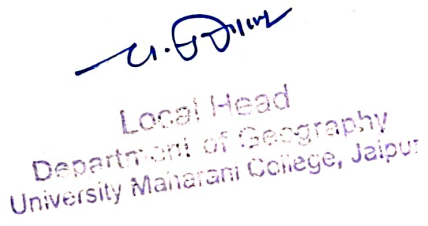 Local Head
Department of Geography
University Maharani College, Jaipur